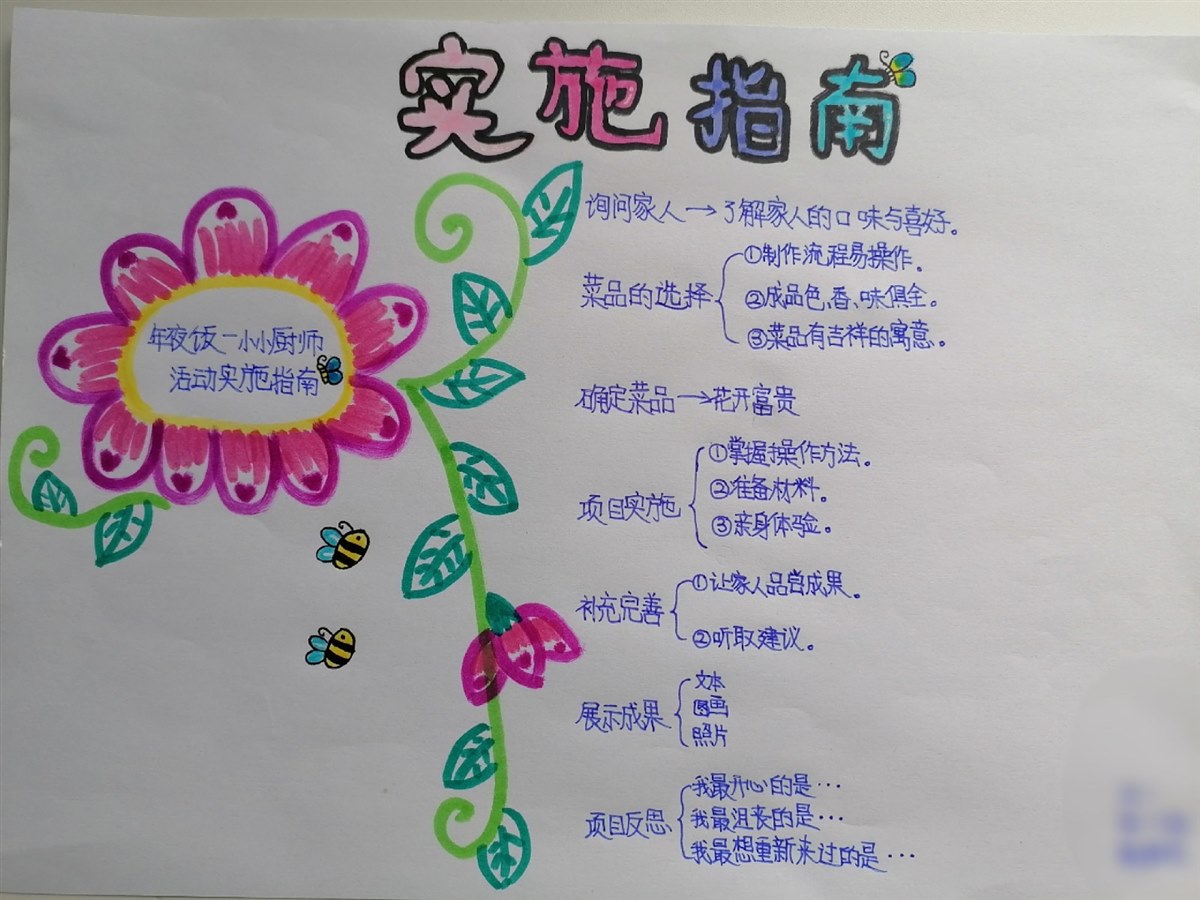 实施指南
年夜饭一小小厨师
活动实施指南
询问家人→了解家人的口味与喜好。
菜品的选择
①制作流程易操作。
②成品色、香、味俱全。
③菜品有吉祥的寓意。
确定菜品→花开富贵
项目实施
①掌握操作方法。
②准备材料。
③亲身体验。
补充完善
①让家人品尝成果。
②听取建议。
展示成果
文本
图画
照片
项目反思
我最开心的是…
我最沮丧的是…
我最想重新来过的是…